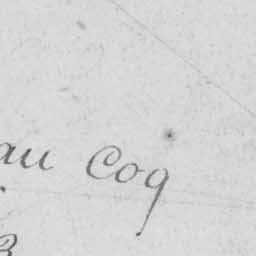 au Coq